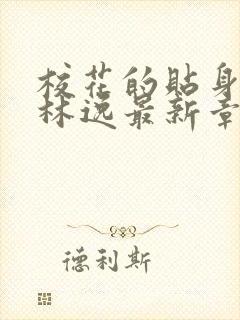 校花的貼身
林逸最新章
德利斯